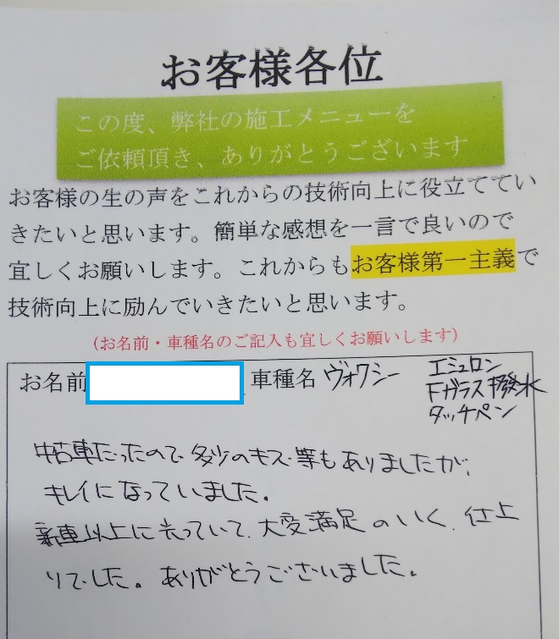 お客様各位
この度、弊社の施工メニューを
ご依頼頂き、ありがとうございます
お客様の生の声をこれからの技術向上に役立ててい
きたいと思います。簡単な感想を一言で良いので
宜しくお願いします。これからもお客様第一主義で
技術向上に励んでいきたいと思います。
(お名前・車種名のご記入も宜しくお願いします)
お名前 車種名 ヴォクシー
エシュロン
Fガラス撥水
タッチペン
中古車だったので多少のキズ等もありましたが、
キレイになっていました。
新車以上に光っていて、大変満足のいく、仕上
りでした。ありがとうございました。